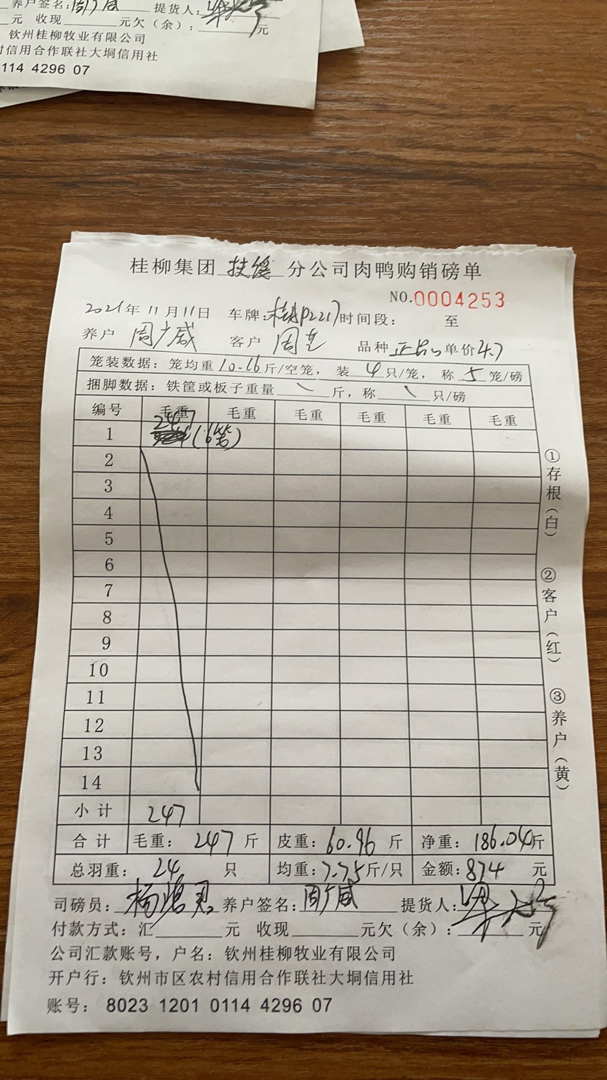 养户签名: 提货人:
元 收现 元欠(余): 元
钦州桂柳牧业有限公司
村信用合作联社大垌信用社
0114 4296 07
桂柳集团 分公司肉鸭购销磅单
NO.0004253
2021年11月11日 车牌: 时间段: 至
养户 周 威 客户 周 品种 单价4.7
笼装数据: 笼均重10.16斤/空笼, 装 4 只/笼, 称 5 笼/磅
捆脚数据: 铁筐或板子重量 \ 斤, 称 \ 只/磅
编号 毛重 毛重 毛重 毛重 毛重 毛重
1 247 (6笼)
2
3
4
5
6
7
8
9
10
11
12
13
14
小计 247
合计 毛重: 247 斤 皮重: 60.96 斤 净重: 186.04斤
总羽重: 24 只 均重: 7.75斤/只 金额: 874 元
①存根(白)
②客户(红)
③养户(黄)
司磅员: 杨 君 养户签名: 周 威 提货人:
付款方式: 汇 元 收现 元欠(余): 元
公司汇款账号, 户名: 钦州桂柳牧业有限公司
开户行: 钦州市区农村信用合作联社大垌信用社
账号: 8023 1201 0114 4296 07